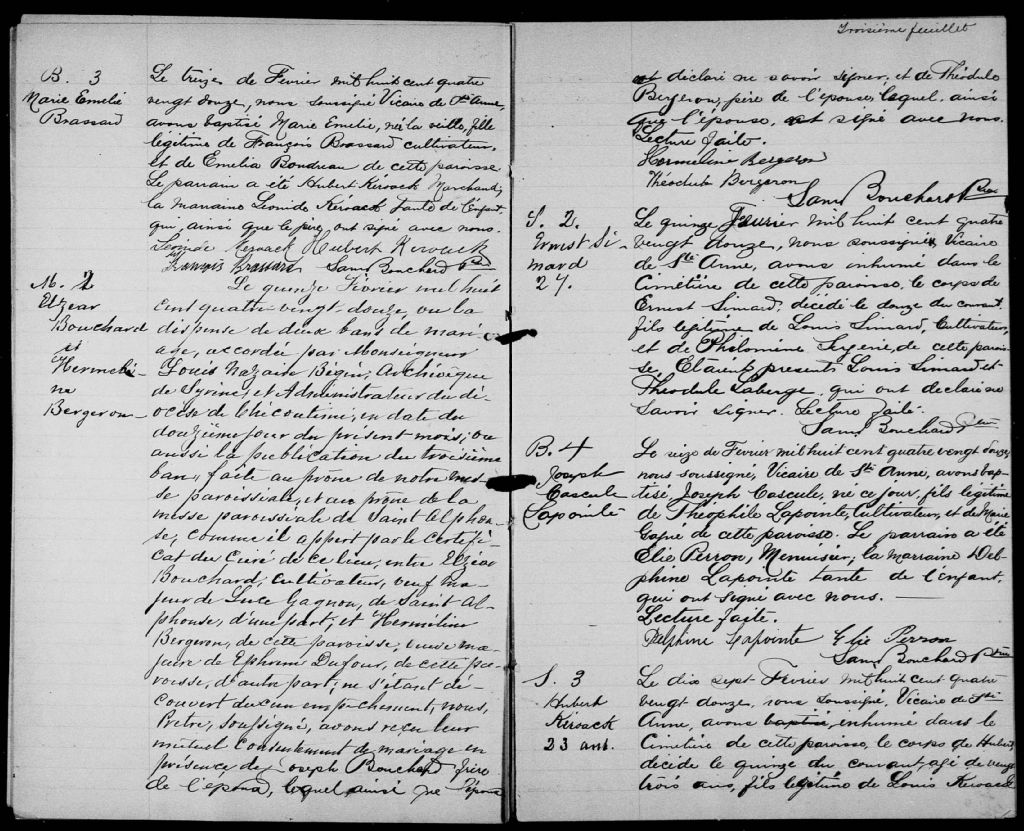 B. 3
Marie Emelie
Brassard
Le treize de Fevrier mil huit cent quatre
vingt douze, nous soussigné Vicaire de Ste Anne,
avons baptisé Marie Emelie, née la veille, fille
légitime de François Brassard cultivateur,
et de Emelia Boudreau de cette paroisse
Le parrain a été Hubert Kéroack Marchand,
la marraine Léonide Kéroack tante de l'enfant,
qui, ainsi que le père, ont signé avec nous.
Léonide Keroack Hubert Keroack
François Brassard Sam. Bouchard Ptre
M. 2
Elzéar
Bouchard
et
Hermeli-
ne
Bergeron
Le quinze Février mil huit
cent quatre-vingt-douze, vu la
dispense de deux bans de mari-
age, accordée par Monseigneur
Louis Nazaire Bégin, Archévêque
de Cyrène, et Administrateur du di-
ocèse de Chicoutimi, en date du
douzième jour du présent mois; vu
aussi la publication du troisième
ban, faite au prône de notre mes-
se paroissiale, et au prône de la
messe paroissiale de Saint Alphon-
se, comme il appert par le certifi-
cat du Curé de ce lieu, entre Elzéar
Bouchard, cultivateur, veuf ma-
jeur de Luce Gagnon, de Saint Al-
phonse, d'une part, et Herméline
Bergeron, de cette paroisse, veuve ma-
jeure de Ephrem Dufour, de cette pa-
roisse, d'autre part; ne s'étant dé-
couvert aucun empêchement, nous,
Prêtre, soussigné, avons reçu leur
mutuel consentement de mariage en
présence de Joseph Bouchard frère
de l'époux, lequel ainsi que l'époux
Troisième feuillet
ont déclaré ne savoir signer, et de Théodule
Bergeron, père de l'épouse, lequel, ainsi
que l'épouse, ont signé avec nous.
Lecture faite.
Hermeline Bergeron
Théodule Bergeron
Sam. Bouchard Ptre
S. 2.
Ernest Si-
mard
27.
Le quinze Fevrier mil huit cent quatre
vingt douze, nous soussigné, Vicaire
de Ste Anne, avons inhumé dans le
Cimétière de cette paroisse, le corps de
Ernest Simard, décédé le douze du courant,
fils légitime de Louis Simard, Cultivateur,
et de Philomène, de cette parois-
se, Etaient presents Louis Simard et
Theodule Laberge, qui ont declaré ne
savoir signer. Lecture faite.
Sam. Bouchard Ptre
B. 4
Joseph
Cascule
Lapointe
Le seize de Fevrier mil huit cent quatre vingt douze,
nous soussigné, Vicaire de Ste Anne, avons bap-
tisé, Joseph Cascule, né ce jour, fils légitime
de Théophile Lapointe, Cultivateur, et de Marie
de cette paroisse. Le parrain a été
Elie Perron, Menuisier, la marraine Del-
phine Lapointe tante de l'enfant,
qui ont signé avec nous. —
Lecture faite.
Delphine Lapointe Elie Perron
Sam. Bouchard Ptre
S. 3
Hubert
Kéroack
23 ans.
Le dix sept Fevrier mil huit cent quatre
vingt douze, nous soussigné, Vicaire de Ste
Anne, avons baptisé, inhumé dans le
Cimétière de cette paroisse, le corps de Hubert,
décédé le quinze du courant, agé de vingt
trois ans, fils légitime de Louis Keroack